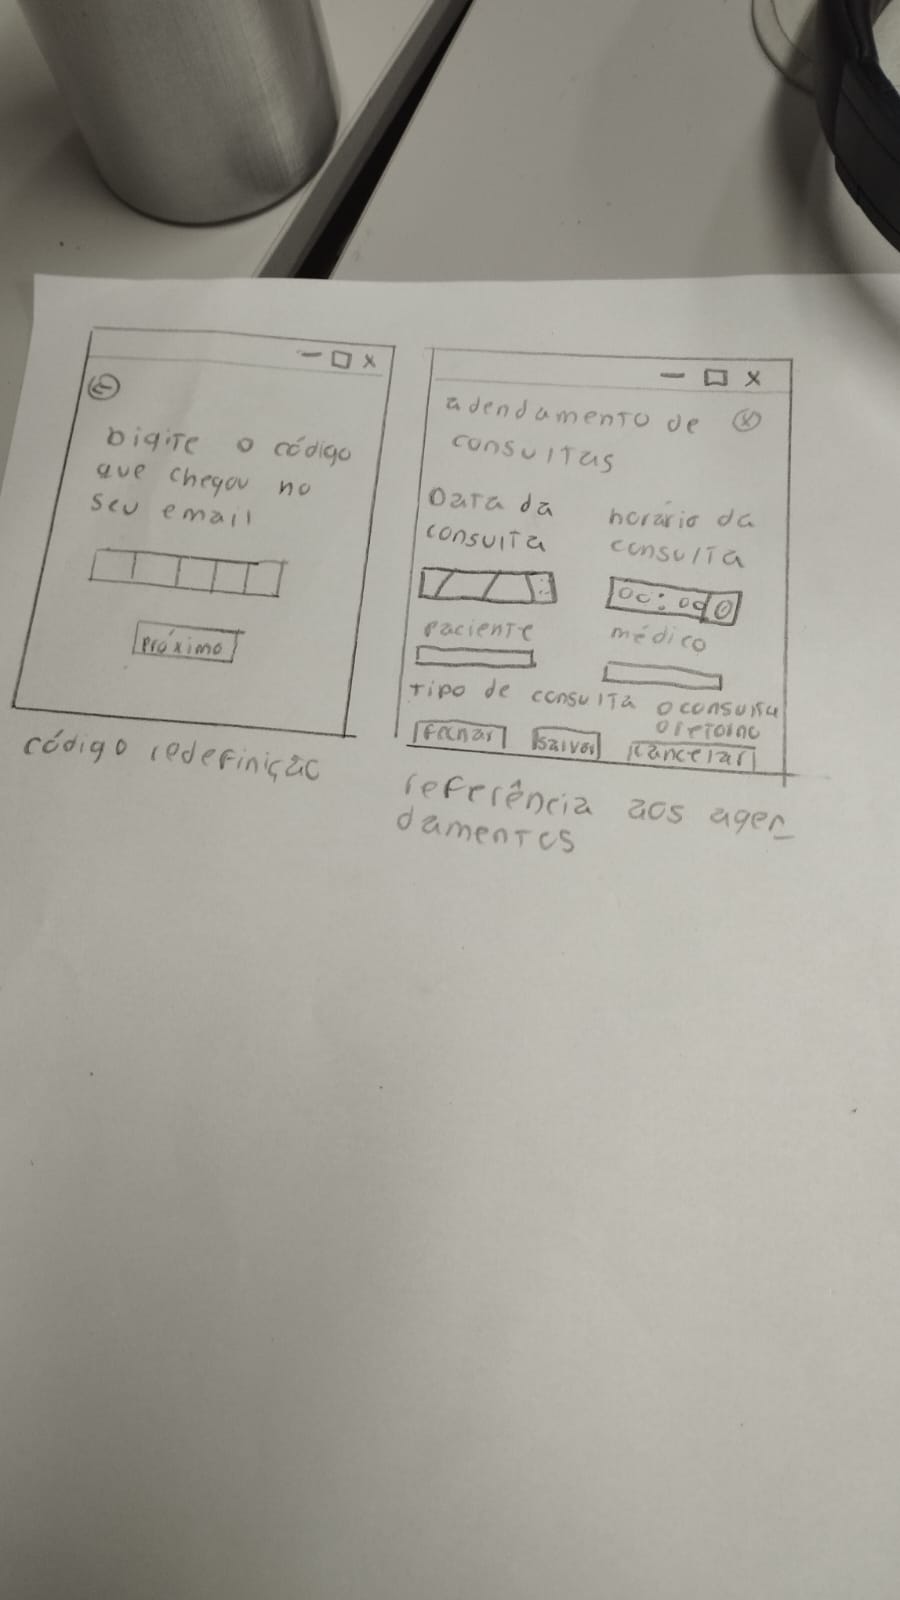 Digite o código
que chegou no
seu email
próximo
código redefinição
adendamento de
consultas
Data da
consulta
horário da
consulta
00:00
paciente
médico
tipo de consulta o consulta
o retorno
fechar salvar cancelar
referência aos agen_
damentos